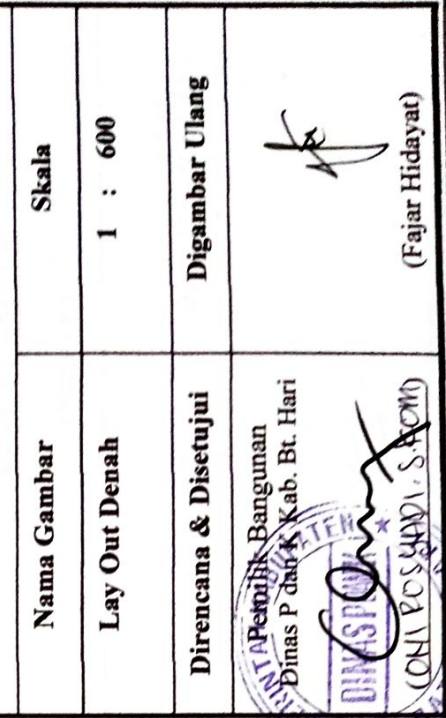 Nama Gambar
Skala
Lay Out Denah
1 : 600
Direncana & Disetujui
Digambar Ulang
Pemilik Bangunan
Dinas P dan K Kab. Bt. Hari
DINAS
(Fajar Hidayat)